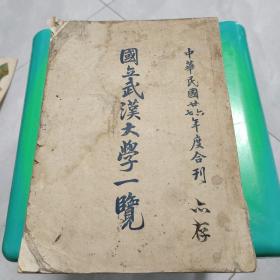 中華民國廿六七年度合刊 六存
國立武漢大學一覽